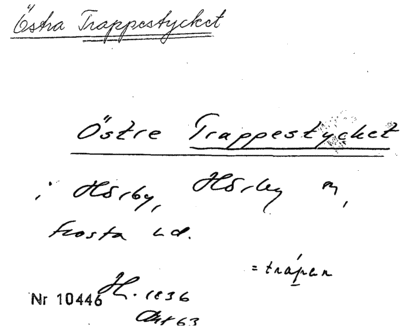 Östra Trappestycket
Östre Trappestycket
i Hörby, Hörby sn,
Frosta hd.
= trápan
Nr 10446 H. 1836
Akt 63